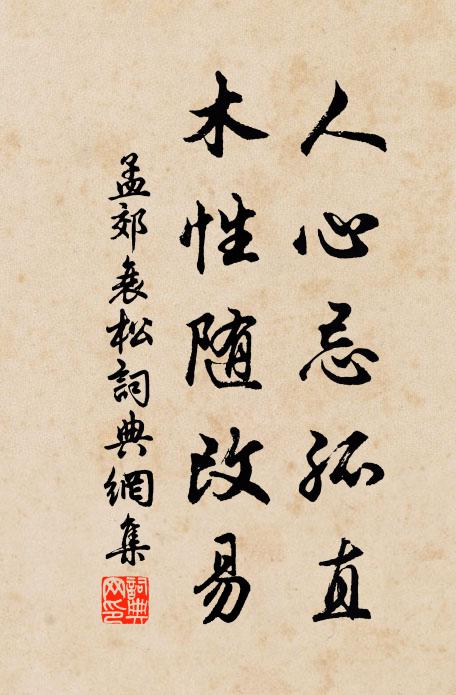 人心忌孤直
木性随改易
孟郊衰松詞典網集
詞典網印